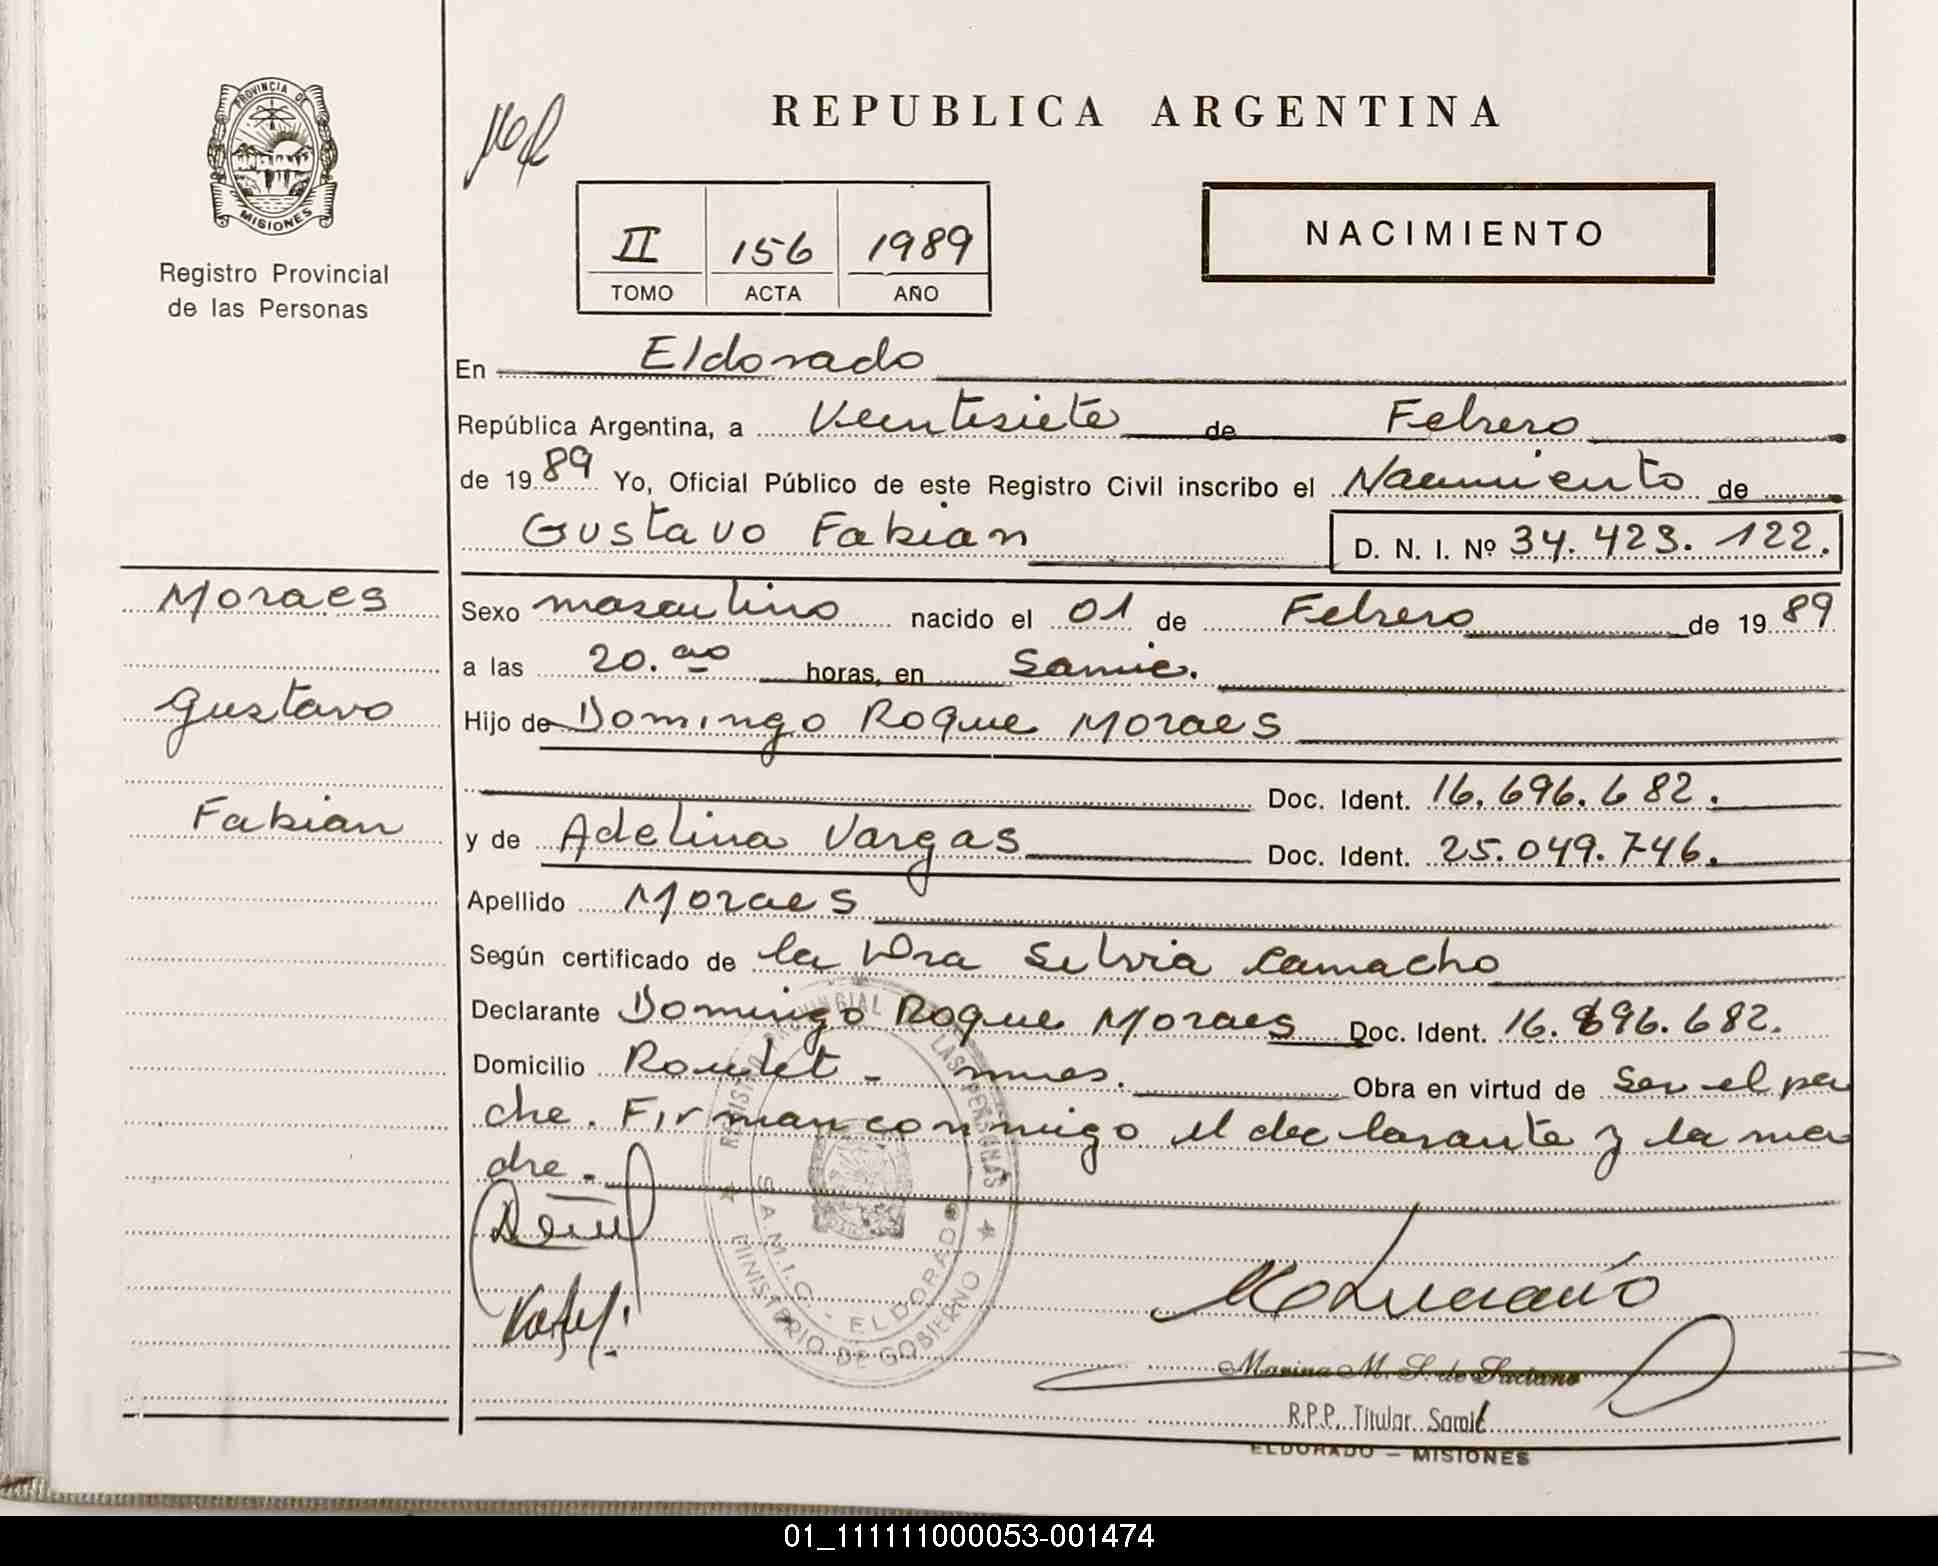 PROVINCIA DE
MISIONES
Registro Provincial
de las Personas
REPUBLICA ARGENTINA
II 156 1989
TOMO ACTA AÑO
NACIMIENTO
En Eldorado
República Argentina, a Veintisiete de Febrero
de 1989 Yo, Oficial Público de este Registro Civil inscribo el Nacimiento de
Gustavo Fabian D. N. I. Nº 34.423.122.
Moraes
Gustavo
Fabian
Sexo masculino nacido el 01 de Febrero de 1989
a las 20.00 horas, en Samic.
Hijo de Domingo Roque Moraes
Doc. Ident. 16.696.682.
y de Adelina Vargas Doc. Ident. 25.049.746.
Apellido Moraes
Según certificado de la Dra Silvia Camacho
Declarante Domingo Roque Moraes Doc. Ident. 16.696.682.
Domicilio Roulet - mnes. Obra en virtud de Ser el pa
dre. Firman conmigo el declarante y la ma
dre.-
REGISTRO PROVINCIAL DE LAS PERSONAS
S.A.M.I.C. - ELDORADO
MINISTERIO DE GOBIERNO
Marina M. S. de Luciano
R.P.P. Titular Samic
ELDORADO – MISIONES
01_111111000053-001474